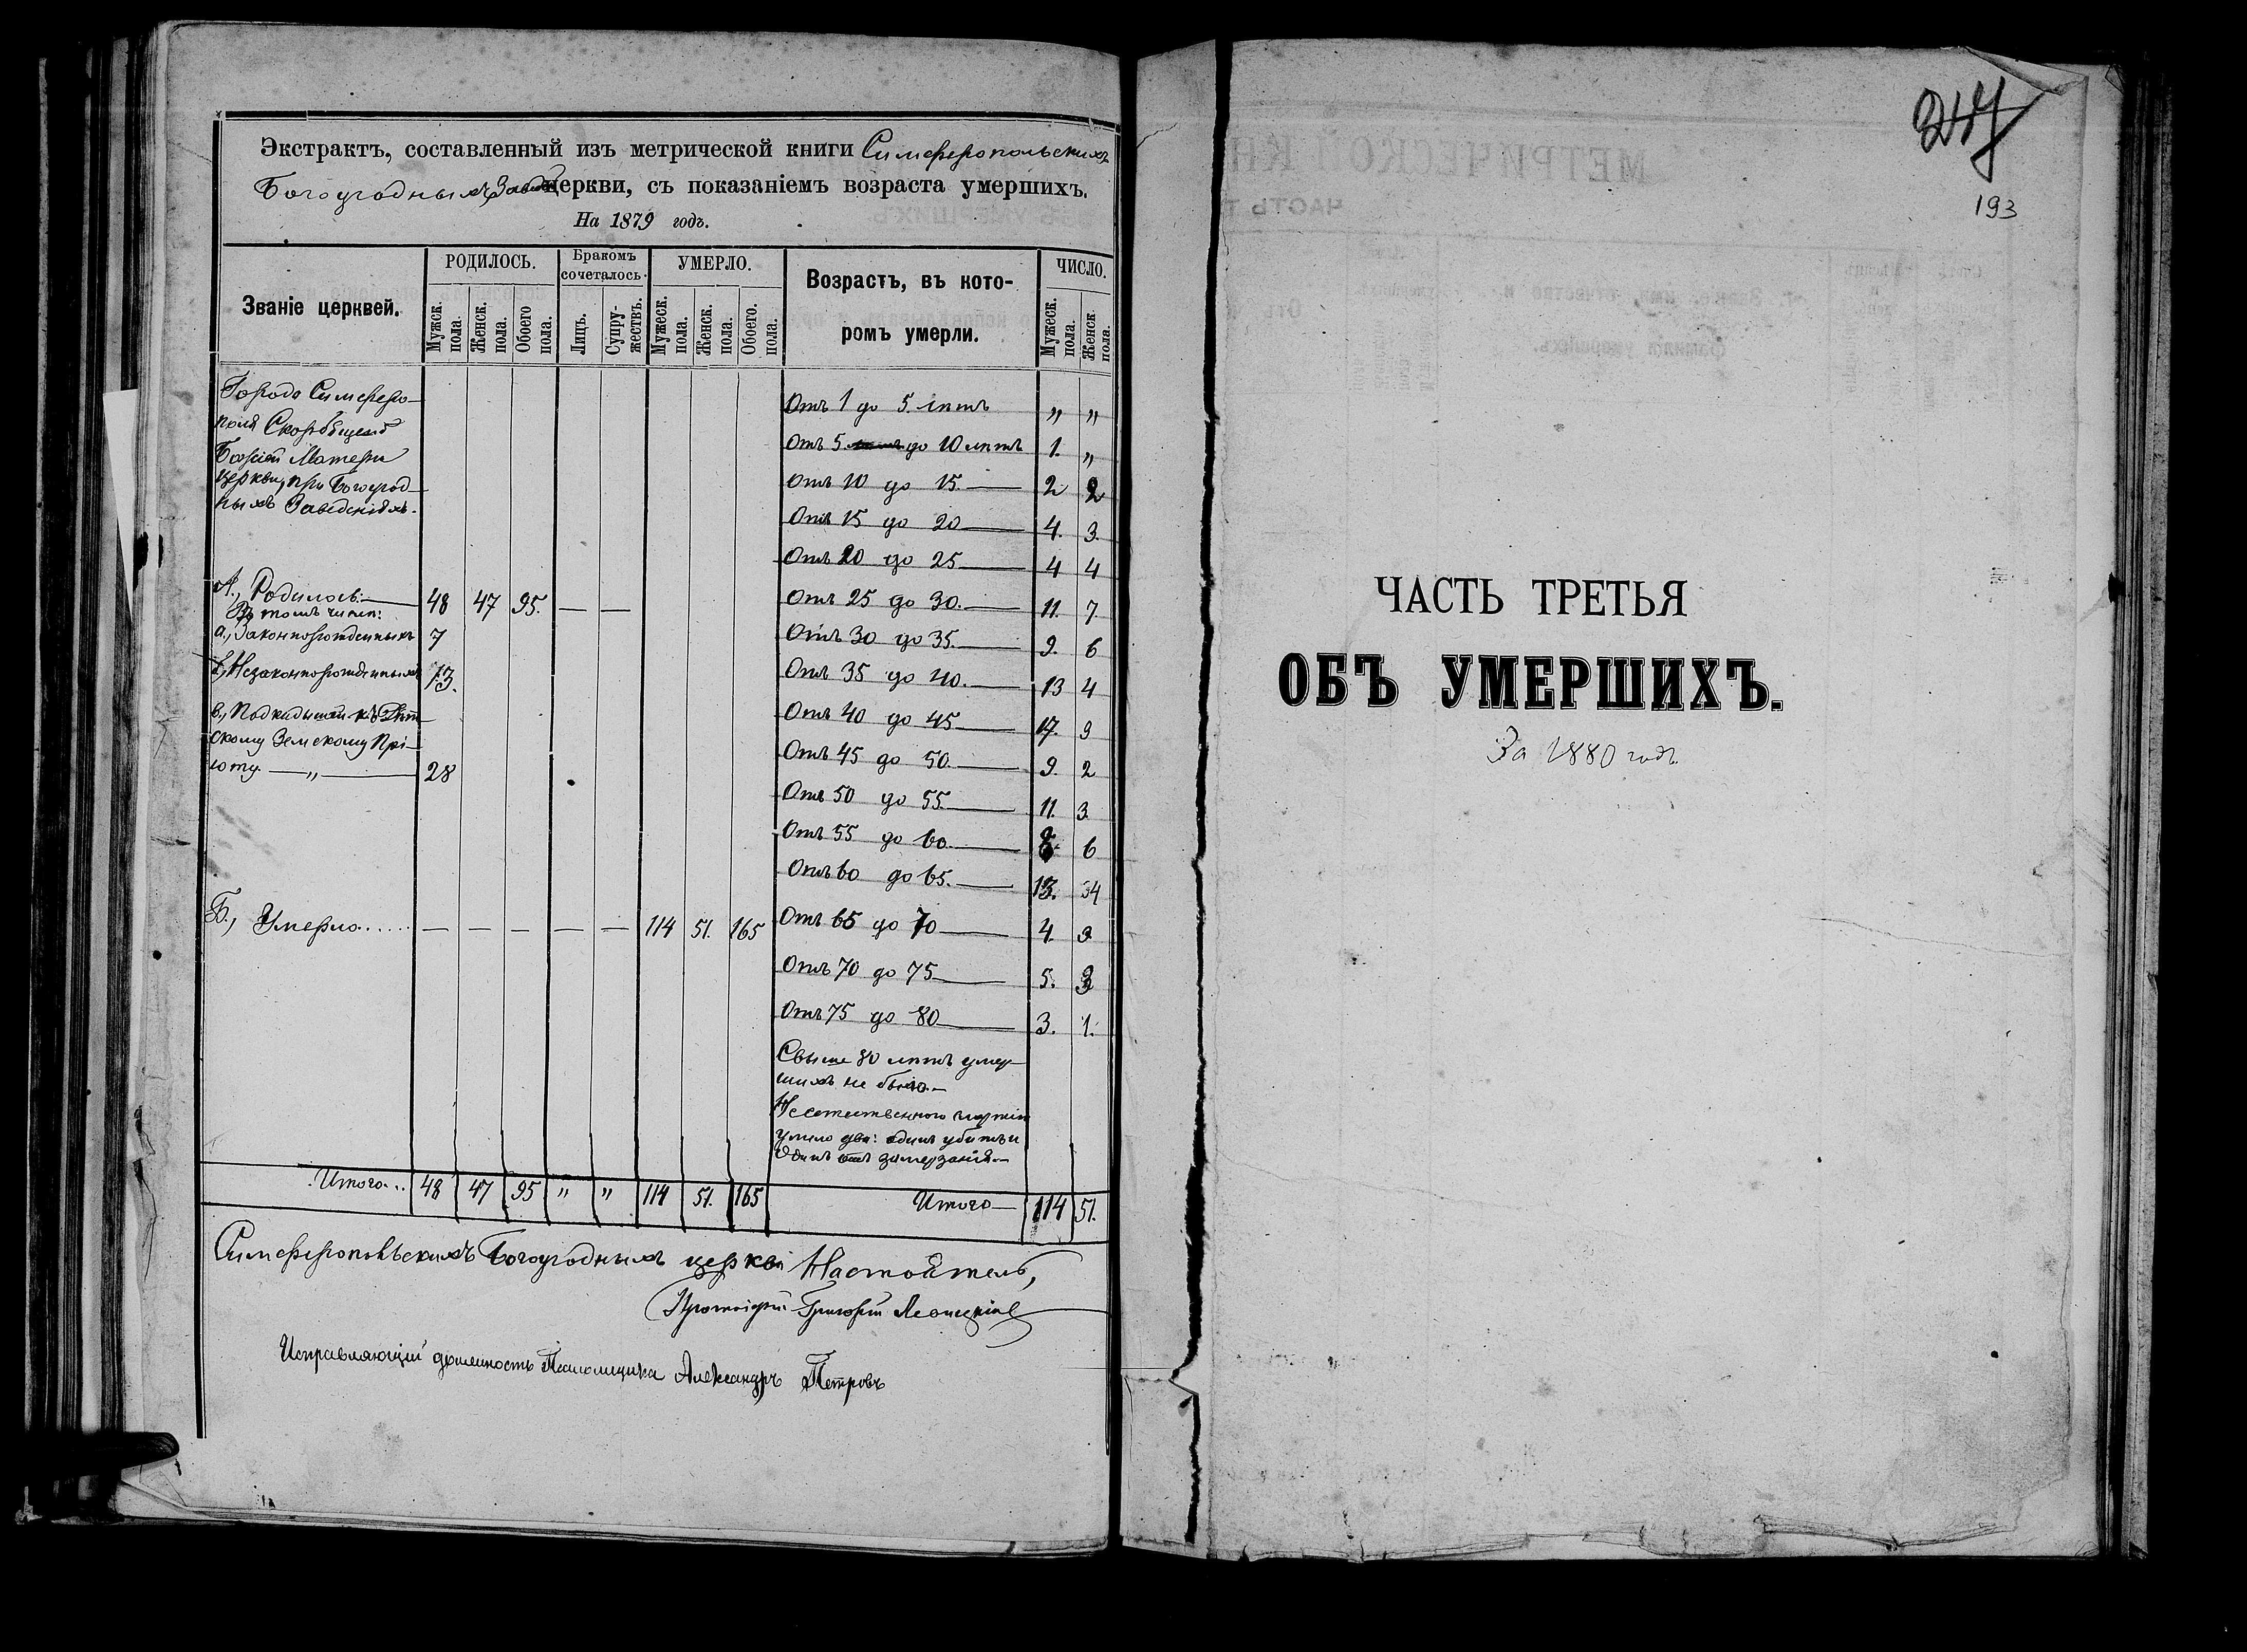 Экстрактъ, составленный изъ метрической книги Симферопольскихъ
Богоугодныхъ Завед. церкви, съ показаніемъ возраста умершихъ.
На 1879 годъ.
Званіе церквей.
РОДИЛОСЬ.
Мужск. пола.
Женск. пола.
Обоего пола.
Бракомъ сочеталось.
Лицъ.
Супружествъ.
УМЕРЛО.
Мужеск. пола.
Женск. пола.
Обоего. пола.
Возрастъ, въ кото-
ромъ умерли.
ЧИСЛО.
Мужеск. пола.
Женск. пола.
Города Симферо-
поля Скорбящей
Божіей Матери
церкви, при Богоугод-
ныхъ Заведеніяхъ.
А., Родилось: — 48 47 95. — —
Въ томъ числѣ:
а., Законнорожденныхъ 7
б., Незаконнорожденныхъ 13.
в., Подкидышей къ Дѣт-
скому Земскому Прі-
юту. — „ — 28
Б., Умерло...... — — — — — 114 51. 165
Отъ 1 до 5. лѣтъ „ „
Отъ 5. до 10 лѣтъ 1. „
Отъ 10 до 15. — 2 2
Отъ 15 до 20 — 4. 3.
Отъ 20 до 25 — 4 4
Отъ 25 до 30. — 11. 7.
Отъ 30 до 35. — 9. 6
Отъ 35 до 40. — 13 4
Отъ 40 до 45 — 17. 9
Отъ 45 до 50. — 9. 2
Отъ 50 до 55. — 11. 3.
Отъ 55 до 60. — 6
Отъ 60 до 65. — 13.
Отъ 65 до 70 — 4.
Отъ 70 до 75 — 5.
Отъ 75 до 80 — 3. 1.
Свыше 80 лѣтъ умер-
шихъ не было. —
Неестественною смертію
умерло два: одинъ убитъ и
Одинъ отъ замерзанія. —
Итого... 48 47 95 „ „ 114 51. 165
Итого — 114 51.
Симферопольскихъ Богоугодныхъ церкви Настоятель,
Протоіерей Григорій
Исправляющій должность Псаломщика Александръ Петровъ
247
193
ЧАСТЬ ТРЕТЬЯ
ОБЪ УМЕРШИХЪ.
За 1880 годъ.